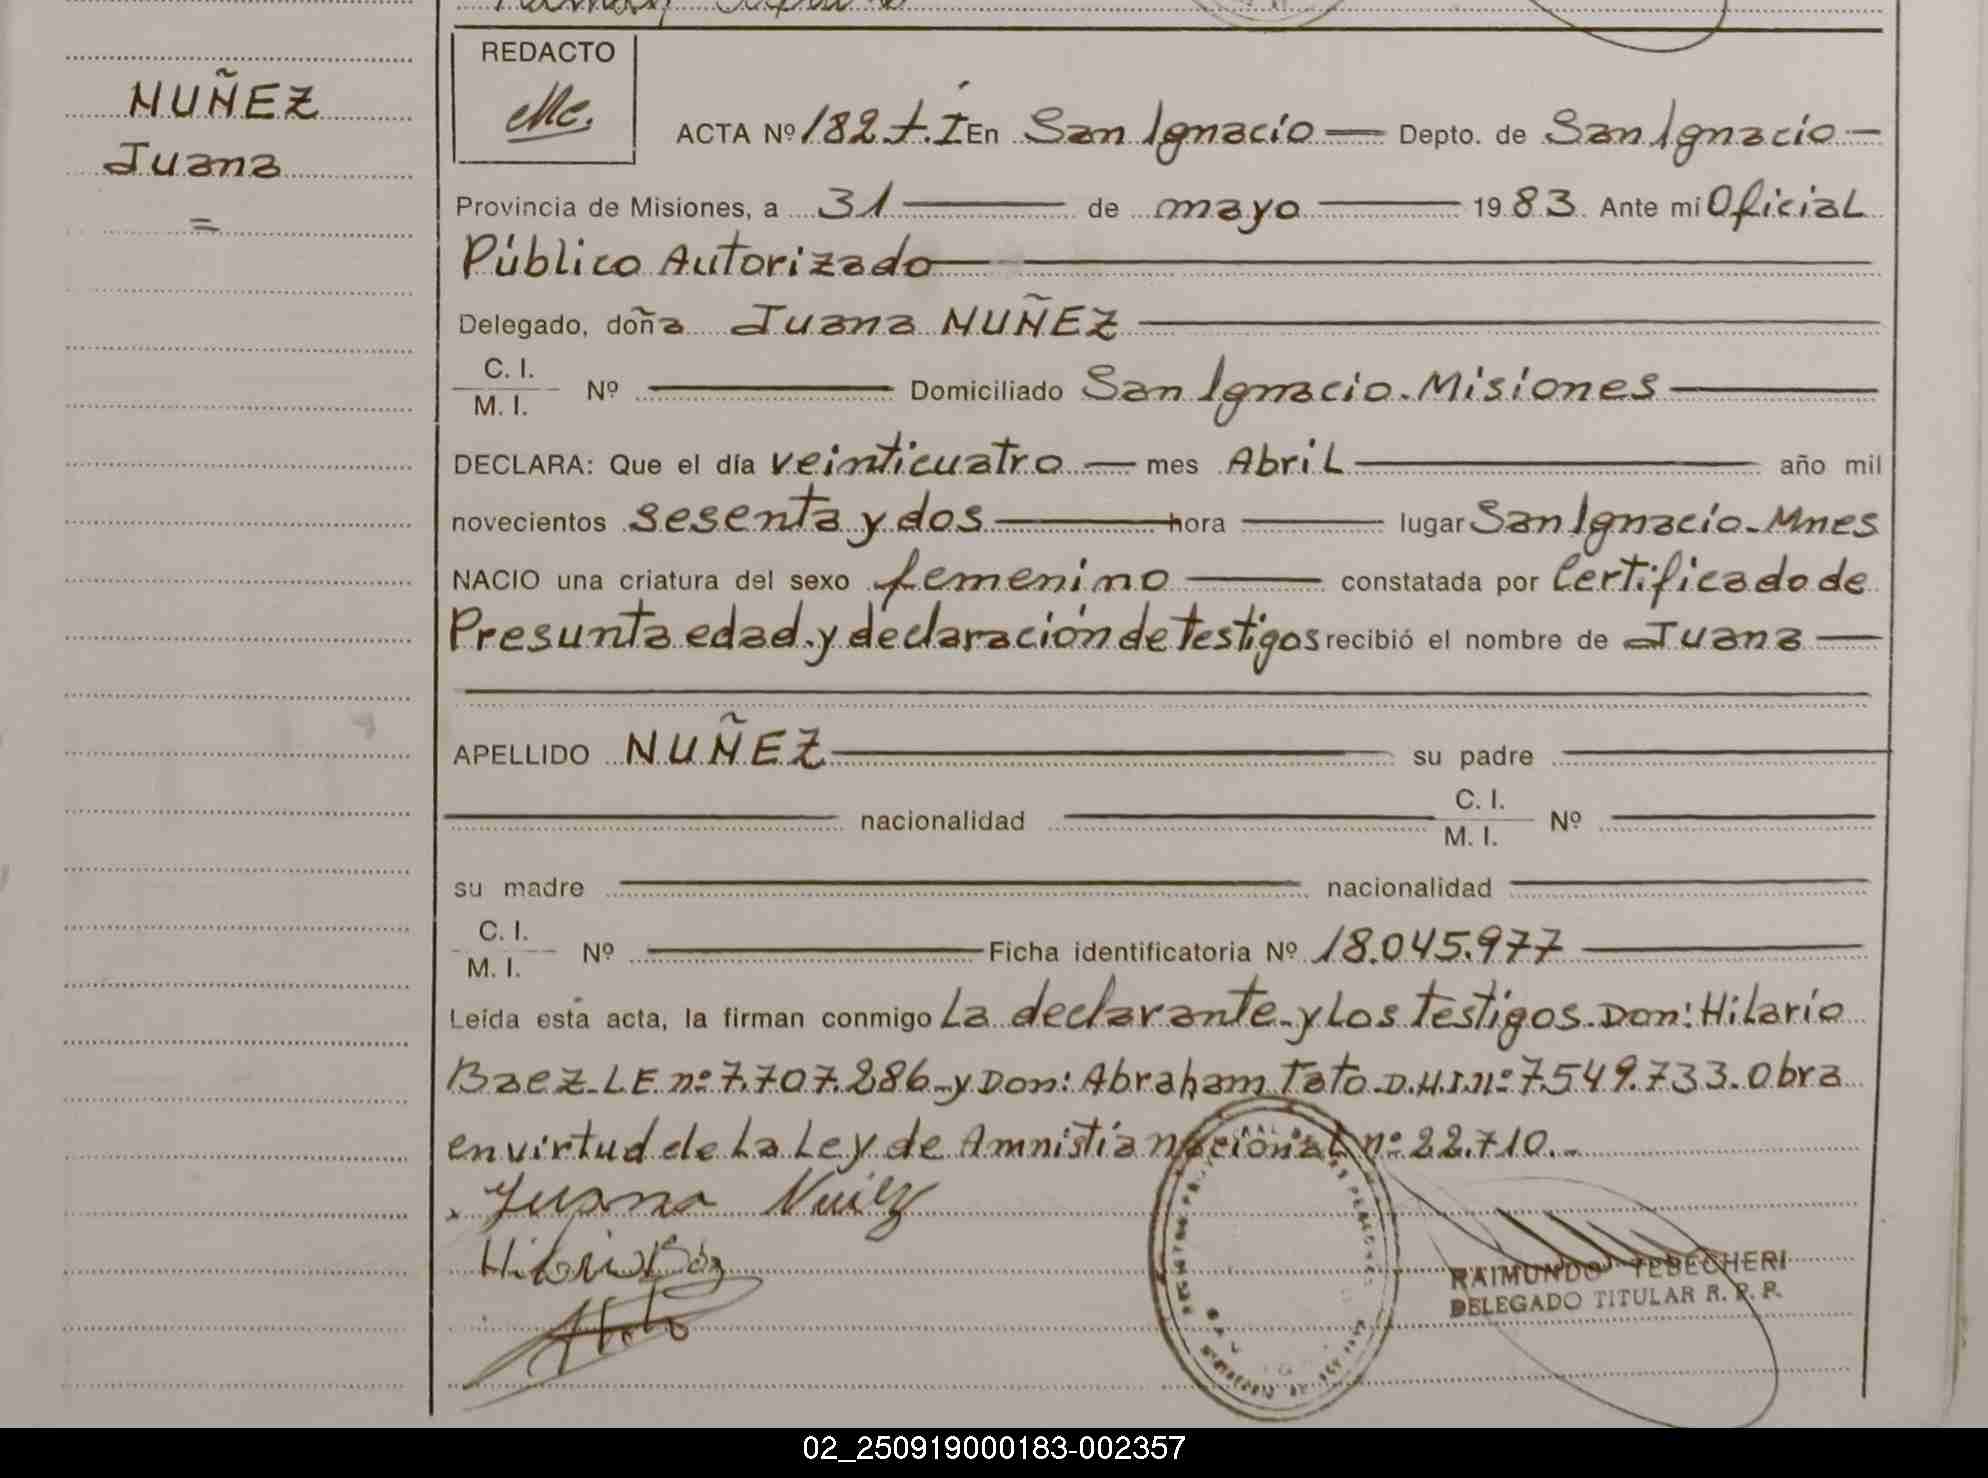 NUÑEZ
Juana
=
REDACTO
ACTA Nº 182 t. I En San Ignacio — Depto. de San Ignacio —
Provincia de Misiones, a 31 — de mayo — 1983. Ante mi Oficial
Público Autorizado —
Delegado, doña Juana NUÑEZ —
C. I.
M. I. Nº — Domiciliado San Ignacio. Misiones —
DECLARA: Que el día veinticuatro — mes Abril — año mil
novecientos sesenta y dos — hora — lugar San Ignacio - Mnes
NACIO una criatura del sexo femenino — constatada por Certificado de
Presunta edad y declaración de testigos recibió el nombre de Juana —
APELLIDO NUÑEZ — su padre —
— nacionalidad — C. I.
M. I. Nº —
su madre — nacionalidad —
C. I.
M. I. Nº — Ficha identificatoria Nº 18.045.977 —
Leída esta acta, la firman conmigo La declarante y Los testigos. Don: Hilario
Baez - L E nº 7.707.286 - y Don: Abraham Tato D.N.I. nº 7.549.733. Obra
en virtud de La Ley de Amnistía nacional nº 22.710.-
Juana Nuñez
Hilario Báez
RAIMUNDO TEBECHERI
DELEGADO TITULAR R. P. P.
02_250919000183-002357